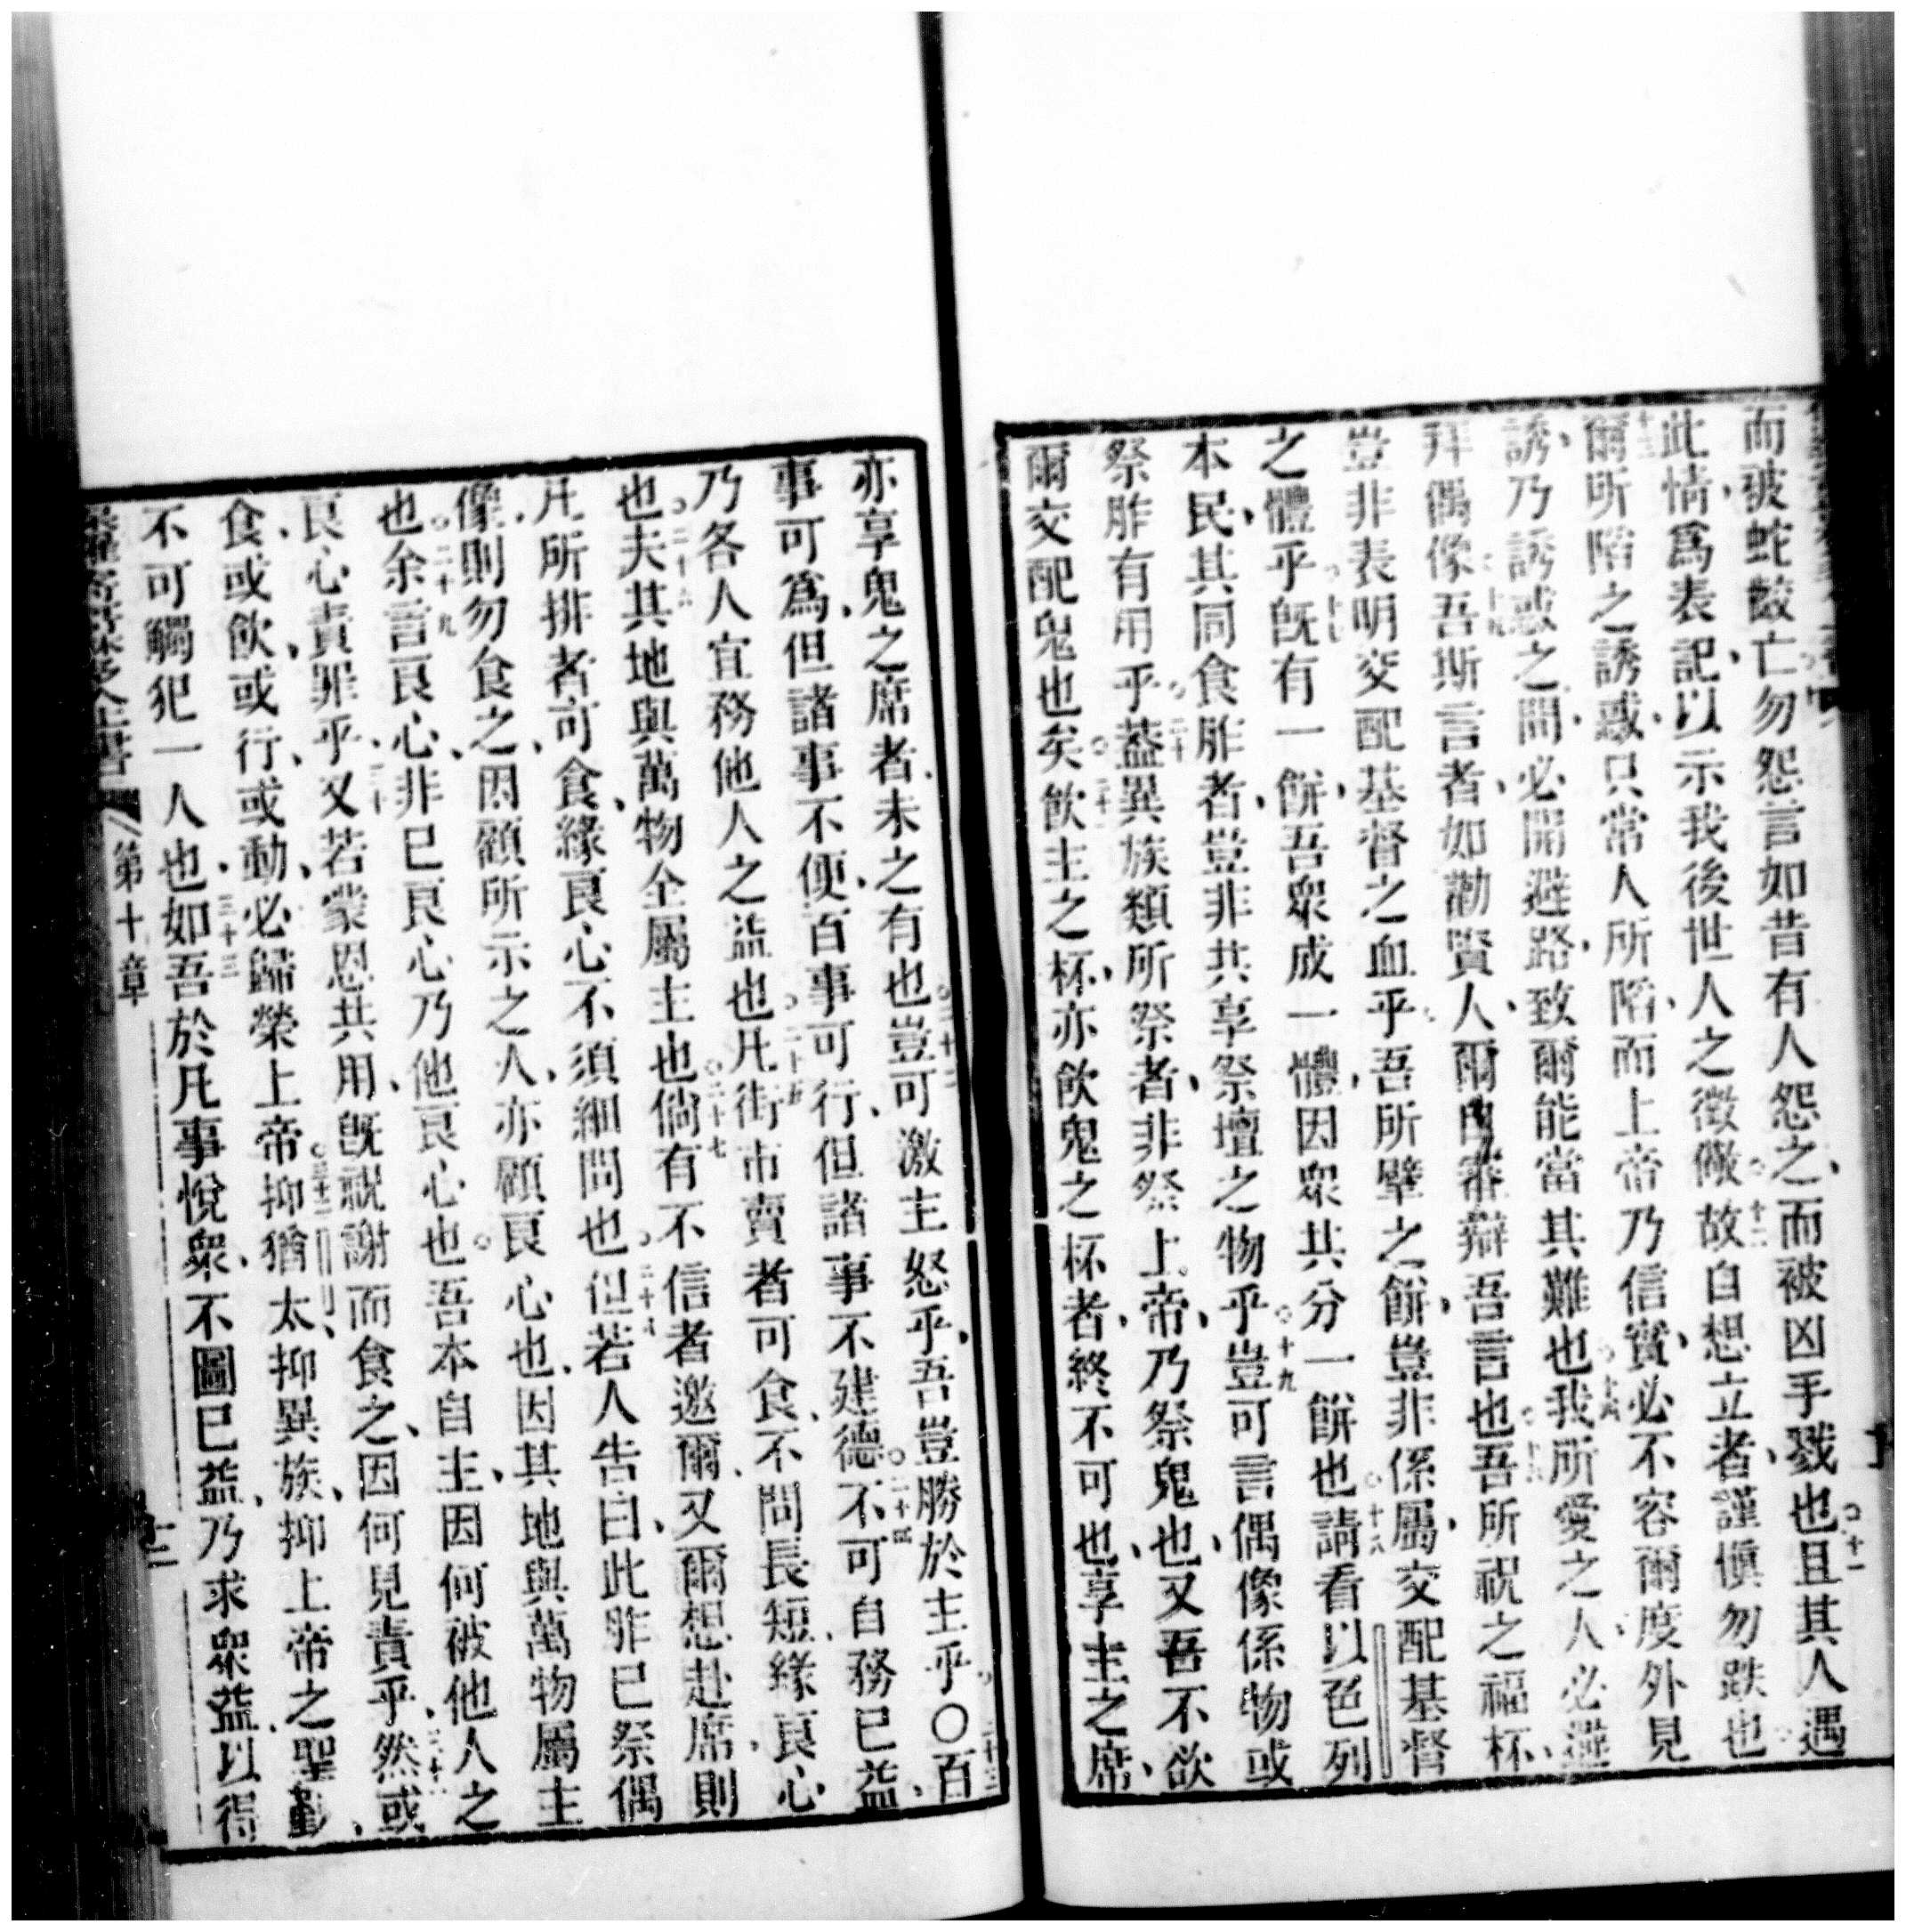 而被蛇齩亡勿怨言如昔有人怨之、而被凶手戮也○十一且其人遇
此情、爲表記、以示我後世人之徵儆○十二故自想立者、謹愼勿跌也
○十三爾所陷之誘惑、只常人所陷、而上帝乃信實、必不容爾度外見
誘、乃誘惑之間、必開避路、致爾能當其難也○十四我所愛之人、必避
拜偶像○十五吾斯言者、如勸賢人、爾自審辯吾言也○十六吾所祝之福杯、
豈非表明交配基督之血乎、吾所擘之餅、豈非係屬、交配基督
之體乎○十七旣有一餅、吾眾成一體、因眾共分一餅也○十八請看以色列
本民、其同食胙者、豈非共享祭壇之物乎○十九豈可言偶像係物或
祭胙有用乎○二十葢異族類所祭者、非祭上帝、乃祭鬼也、又吾不欲
爾交配鬼也矣○二十一飲主之杯、亦飲鬼之杯者、終不可也、享主之席、
亦享鬼之席者、未之有也○二十二豈可激主怒乎、吾豈勝於主乎○百
事可爲、但諸事不便、百事可行、但諸事不建德○二十四不可自務已益、
乃各人宜務他人之益也○二十五凡街市賣者可食、不問長短、緣良心
也○二十六夫其地與萬物全屬主也○二十七倘有不信者邀爾、又爾想赴席、則
凡所排者可食、緣良心不須細問也○二十八但若人告曰、此胙已祭偶
像、則勿食之、因顧所示之人、亦顧良心也、因其地與萬物屬主
也○二十九余言良心、非已良心、乃他良心也○吾本自主、因何被他人之
良心責罪乎、○三十又若蒙恩共用、旣祝謝而食之、因何見責乎、○三十一然或
食、或飲、或行、或動、必歸榮上帝○三十二抑猶太、抑異族、抑上帝之聖會、
不可觸犯一人也、○三十三如吾於凡事悅衆、不圖已益、乃求眾益、以得
第十章
十二